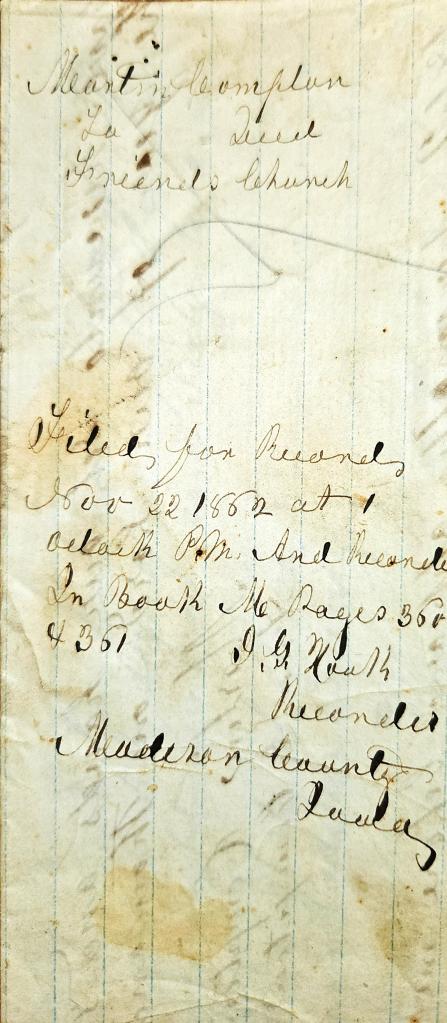 Martin Compton
To Deed
Friends Church
Filed for Record
Nov 22 1862 at 1
oclock P.M. And Recorde
In Book M Pages 360
& 361 J. G.
Recorder
Madison County